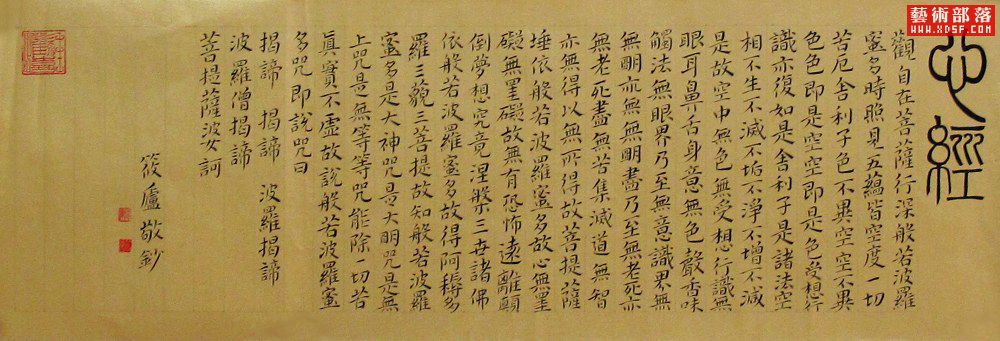 藝術部落
www.XDSF.com
心經
觀自在菩薩行深般若波羅
蜜多時照見五蘊皆空度一切
苦厄舍利子色不異空空不異
色色即是空空即是色受想行
識亦復如是舍利子是諸法空
相不生不滅不垢不淨不增不減
是故空中無色無受想行識無
眼耳鼻舌身意無色聲香味
觸法無眼界乃至無意識界無
無明亦無無明盡乃至無老死亦
無老死盡無苦集滅道無智
亦無得以無所得故菩提薩
埵依般若波羅蜜多故心無罣
礙無罣礙故無有恐怖遠離顛
倒夢想究竟涅槃三世諸佛
依般若波羅蜜多故得阿耨多
羅三藐三菩提故知般若波羅
蜜多是大神咒是大明咒是無
上咒是無等等咒能除一切苦
真實不虛故說般若波羅蜜
多咒即說咒曰
揭諦 揭諦 波羅揭諦
波羅僧揭諦
菩提薩婆訶
筱廬敬鈔